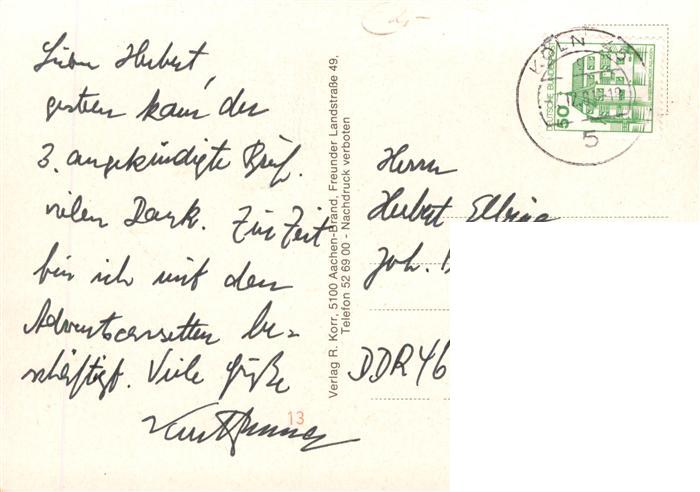 Lieber Herbert,
gestern kam der
3. angekündigte Brief.
Vielen Dank. Zur Zeit
bin ich mit den
Adventscassetten be-
schäftigt. Viele Grüße
13
Verlag R. Korr, 5100 Aachen-Brand, Freunder Landstraße 49,
Telefon 52 69 00 - Nachdruck verboten
KÖLN
5
50
DEUTSCHE BUNDESPOST
Herrn
Herbert
Joh.
DDR 46